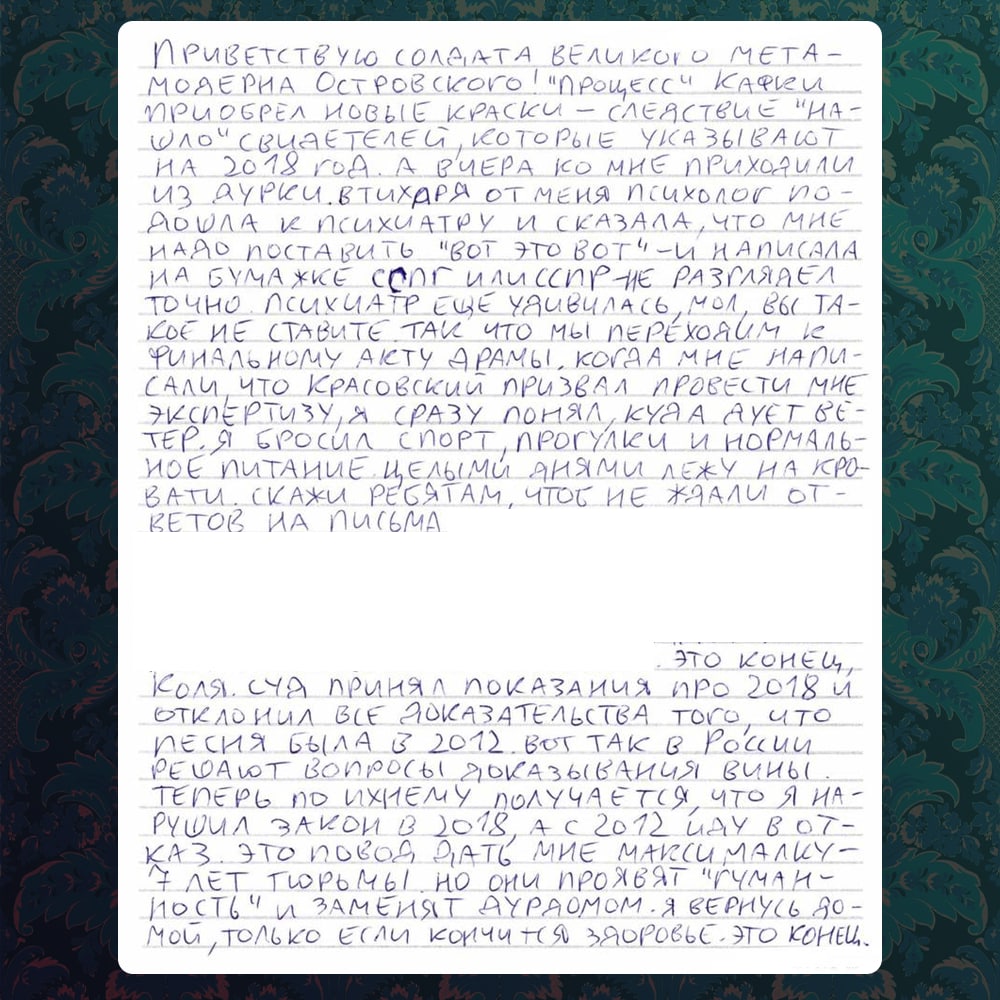 Приветствую солдата великого мета-
модерна Островского! "Процесс" Кафки
приобрёл новые краски – следствие "на-
шло" свидетелей, которые указывают
на 2018 год. А вчера ко мне приходили
из дурки. Втихаря от меня психолог по-
дошла к психиатру и сказала, что мне
надо поставить "вот это вот" – и написала
на бумажке ССПГ или ССПР – не разглядел
точно. Психиатр ещё удивилась, мол, вы та-
кое не ставите. Так что мы переходим к
финальному акту драмы. Когда мне напи-
сали, что Красовский призвал провести мне
экспертизу, я сразу понял, куда дует ве-
тер. Я бросил спорт, прогулки и нормаль-
ное питание. Целыми днями лежу на кро-
вати. Скажи ребятам, чтоб не ждали от-
ветов на письма
. Это конец,
Коля. Суд принял показания про 2018 и
отклонил все доказательства того, что
песня была в 2012. Вот так в России
решают вопросы доказывания вины.
Теперь по ихнему получается, что я на-
рушил закон в 2018, а с 2012 иду в от-
каз. Это повод дать мне максималку –
7 лет тюрьмы. Но они проявят "гуман-
ность" и заменят дурдомом. Я вернусь до-
мой, только если кончится здоровье. Это конец.